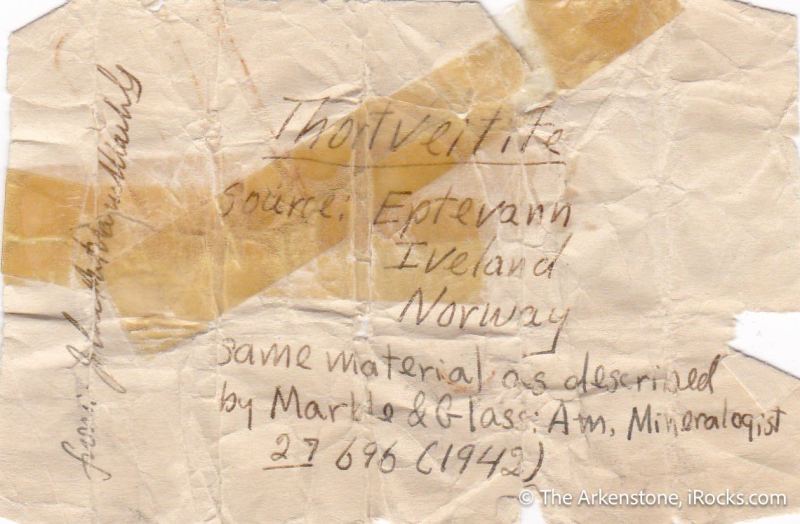 Thortveitite
source: Eptevann
Iveland
Norway
same material as described
by Marble & Glass: Am. Mineralogist
27 696 (1942)
from: John
© The Arkenstone, iRocks.com